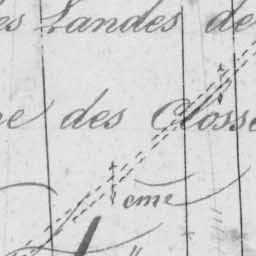 es Landes de
e des Closse
eme